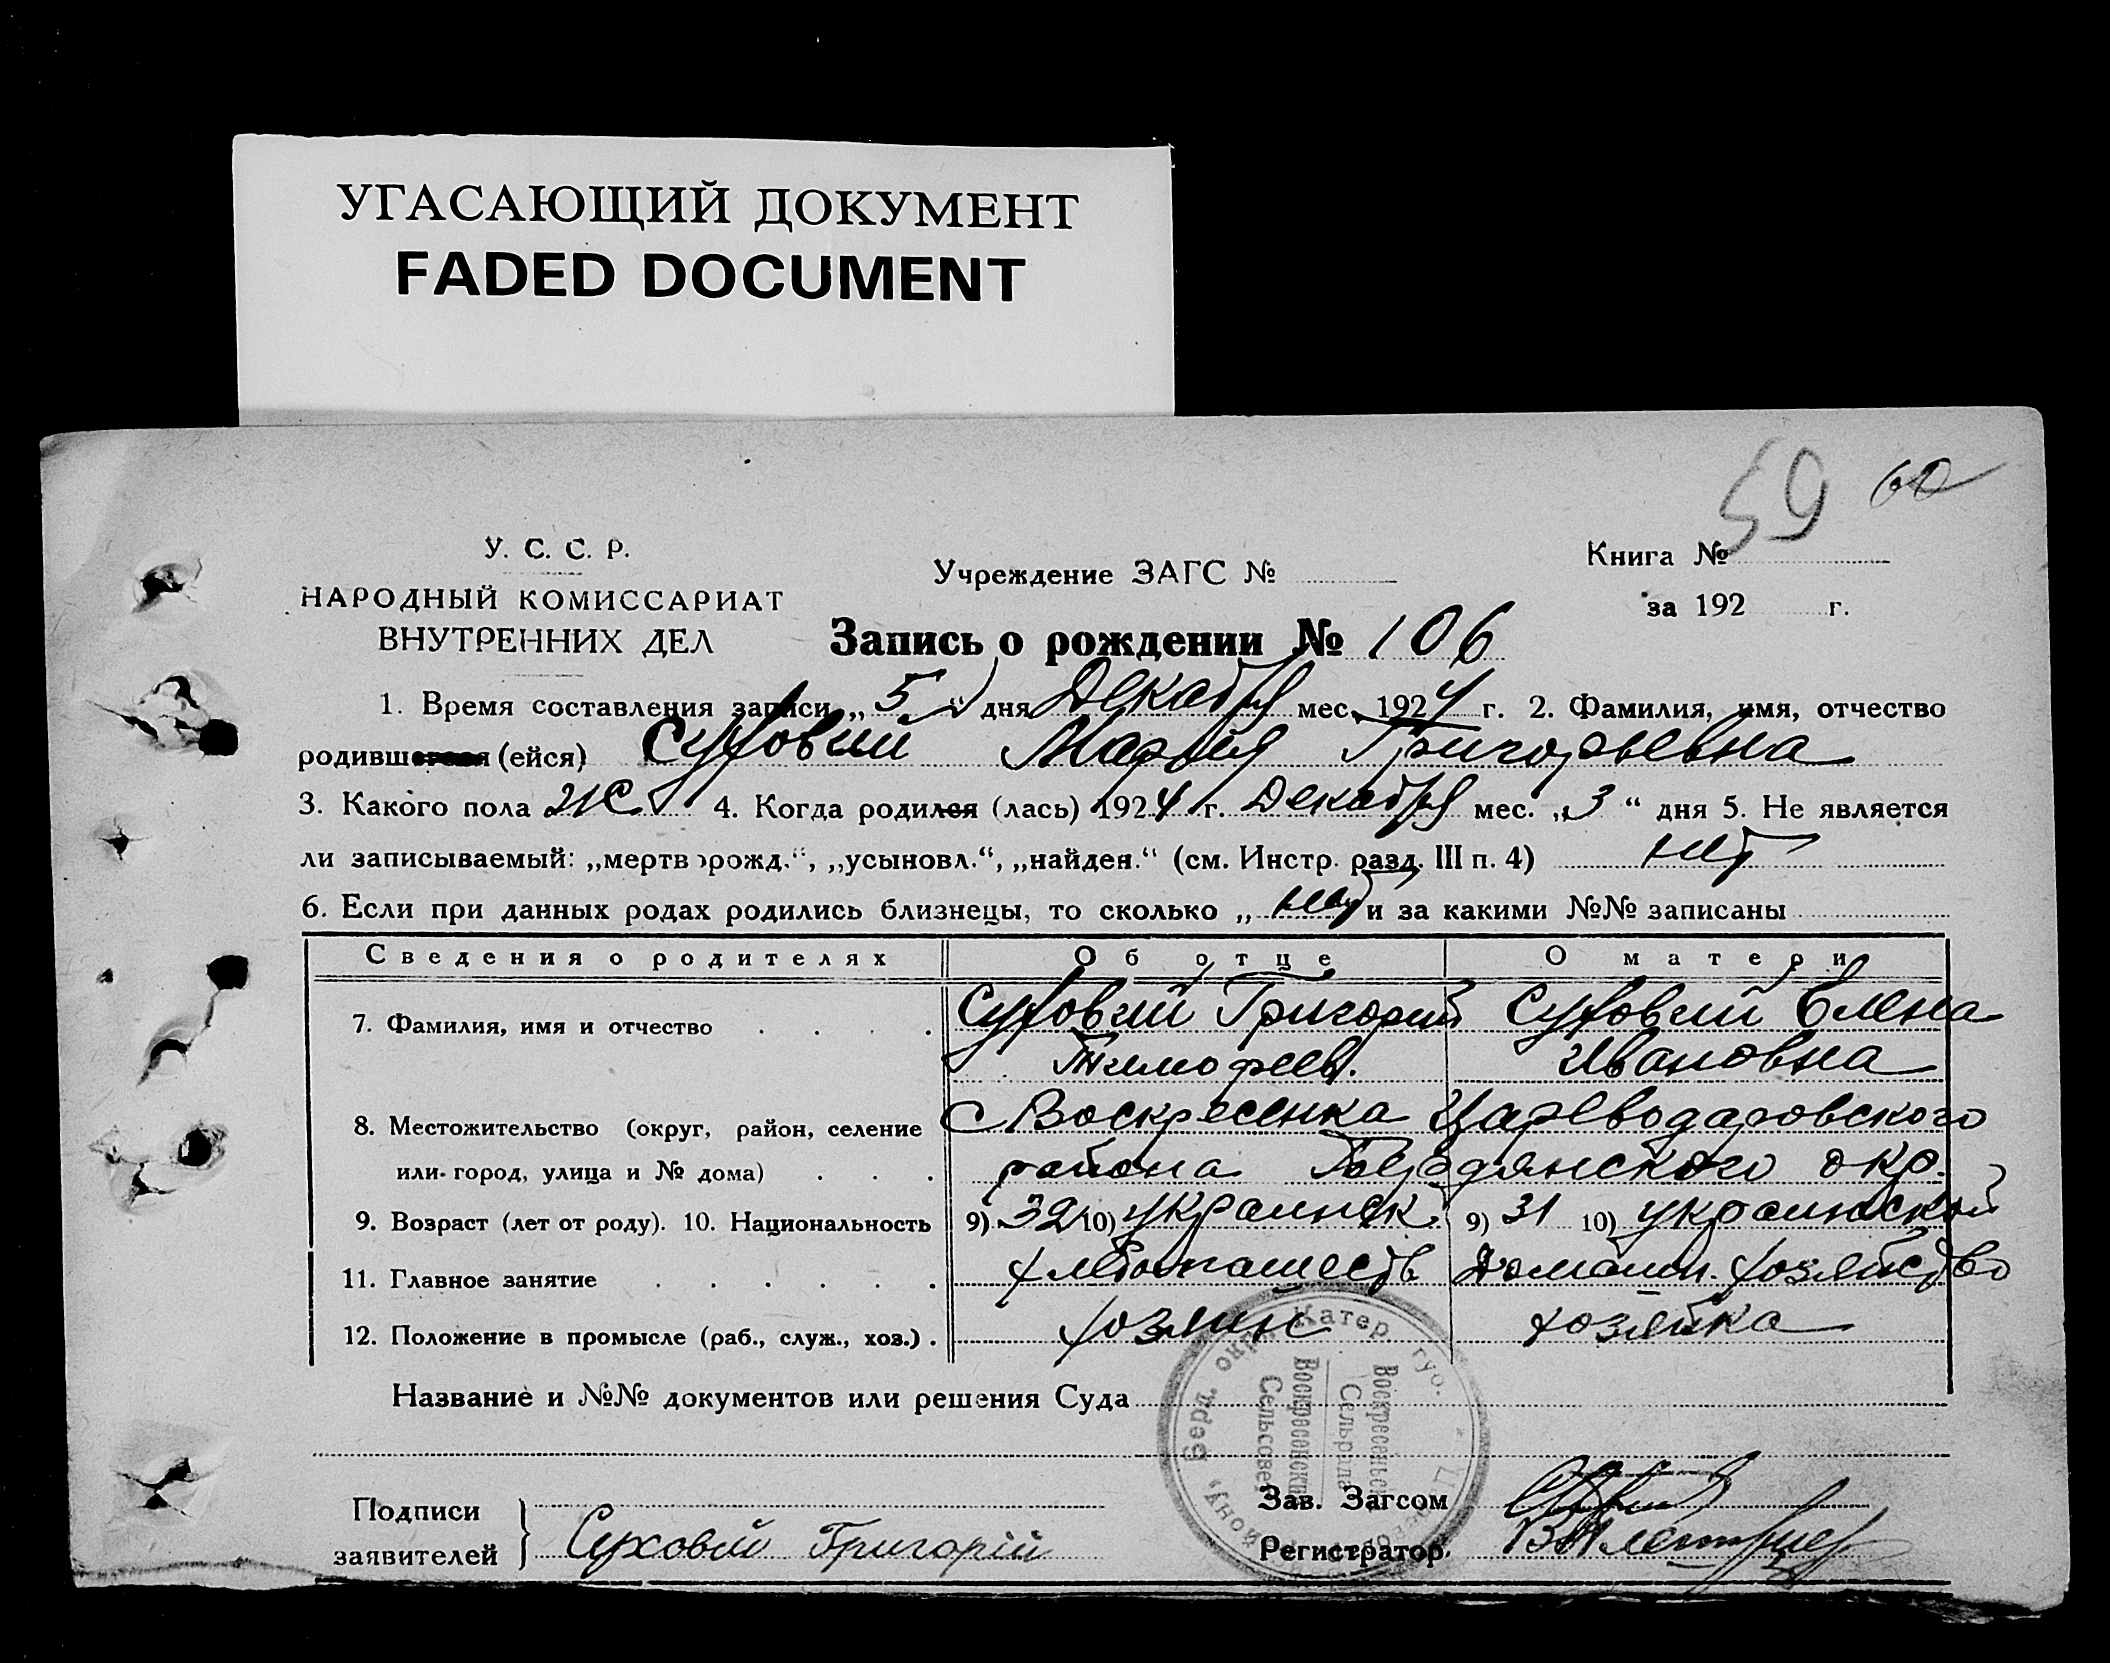 УГАСАЮЩИЙ ДОКУМЕНТ
FADED DOCUMENT
59 60
У. С. С. Р.
НАРОДНЫЙ КОМИССАРИАТ
ВНУТРЕННИХ ДЕЛ
Учреждение ЗАГС №
Книга №
за 192 г.
Запись о рождении № 106
1. Время составления записи „5“ дня Декабря мес. 1924 г. 2. Фамилия, имя, отчество
родившегося (ейся) Суховий Мария Григорьевна
3. Какого пола ж 4. Когда родился (лась) 1924 г. Декабря мес. „3“ дня 5. Не является
ли записываемый: „мертворожд.“, „усыновл.“, „найден.“ (см. Инстр. разд. III п. 4) нет
6. Если при данных родах родились близнецы, то сколько „ нет и за какими №№ записаны
Сведения о родителях Об отце О матери
7. Фамилия, имя и отчество Суховий Григорий Суховий Елена
Тимофеев. Ивановна
8. Местожительство (округ, район, селение с Воскресенка Цареводаровского
или город, улица и № дома) района Бердянского окр.
9. Возраст (лет от роду). 10. Национальность 9) 32 10) украинск. 9) 31 10) украинской
11. Главное занятие хлебопашеств Домашн. хозяйство
12. Положение в промысле (раб., служ., хоз.) хозяин хозяйка
Название и №№ документов или решения Суда
Катер. губ. Берд. окр.
Воскресенский
Сельсовет
Подписи
заявителей Суховій Григорій
Зав. Загсом
Регистратор